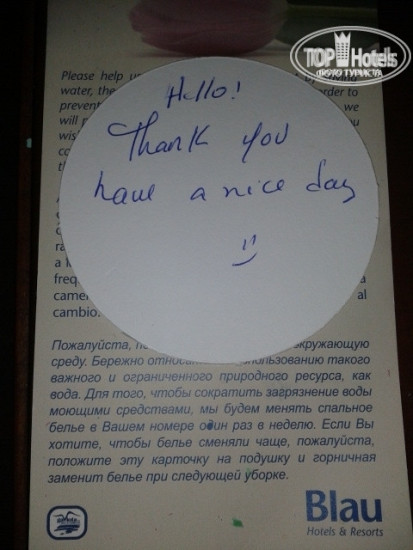 TOP Hotels
ФОТО ТУРИСТА
Please help
water, the
order to
prevent
we
will
wis
Hello!
Thank you
have a nice day
freq
a
camer
al
cambio.
Пожалуйста,
окружающую
среду. Бережно относ использованию такого
важного и ограниченного природного ресурса, как
вода. Для того, чтобы сократить загрязнение воды
моющими средствами, мы будем менять спальное
белье в Вашем номере один раз в неделю. Если Вы
хотите, чтобы белье сменяли чаще, пожалуйста,
положите эту карточку на подушку и горничная
заменит белье при следующей уборке.
Blau
Hotels & Resorts